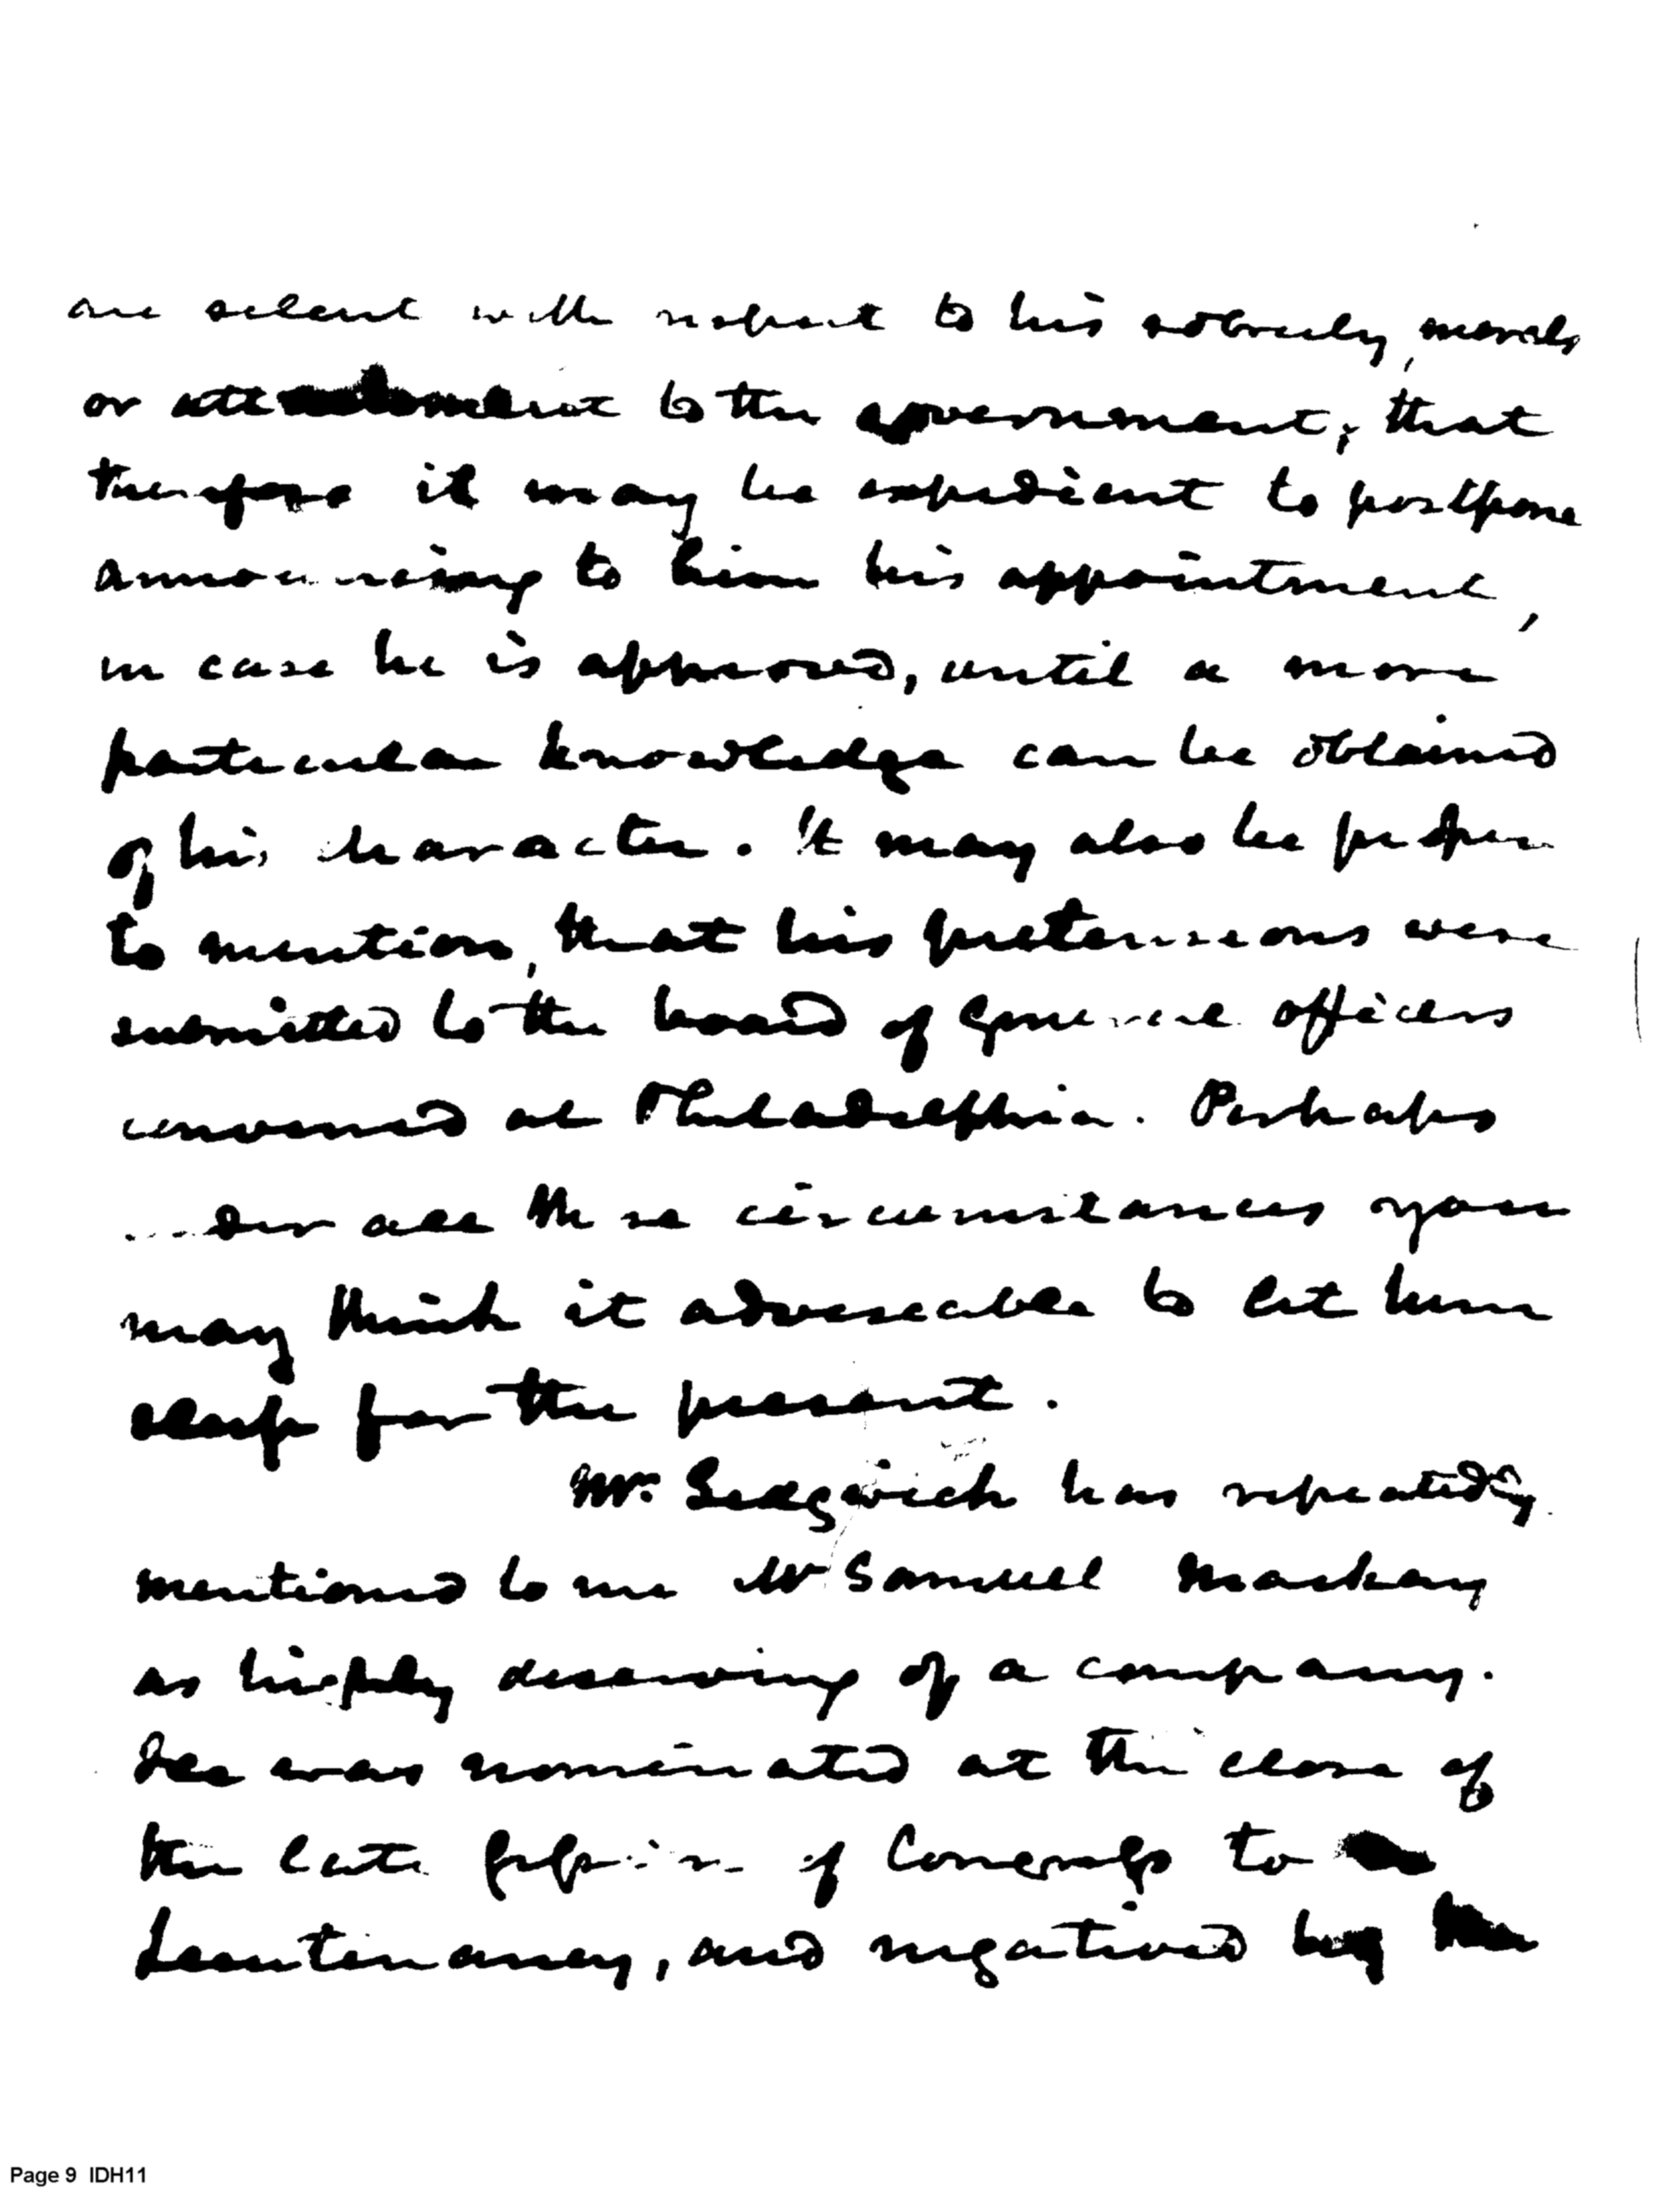 are silent with respect to his sobriety, morals
or attachment to the government; that
therefore it may be expedient to postpone
announcing to him his appointment,
in case he is approved, until a more
particular knowledge can be obtained
of his character. It may also be proper
to mention, that his pretensions were
submitted to the board of general officers
convened at Philadelphia. Perhaps
under all these circumstances you
may think it adviseable to let him
sleep for the present.
Mr. Sedgwick has repeatedly
mentioned to me Mr Samuel Mackay
as highly deserving of a company.
he was nominated at the close of
the late session of Congress to a
Lieutenancy, and negatived by the
Page 9 IDH11